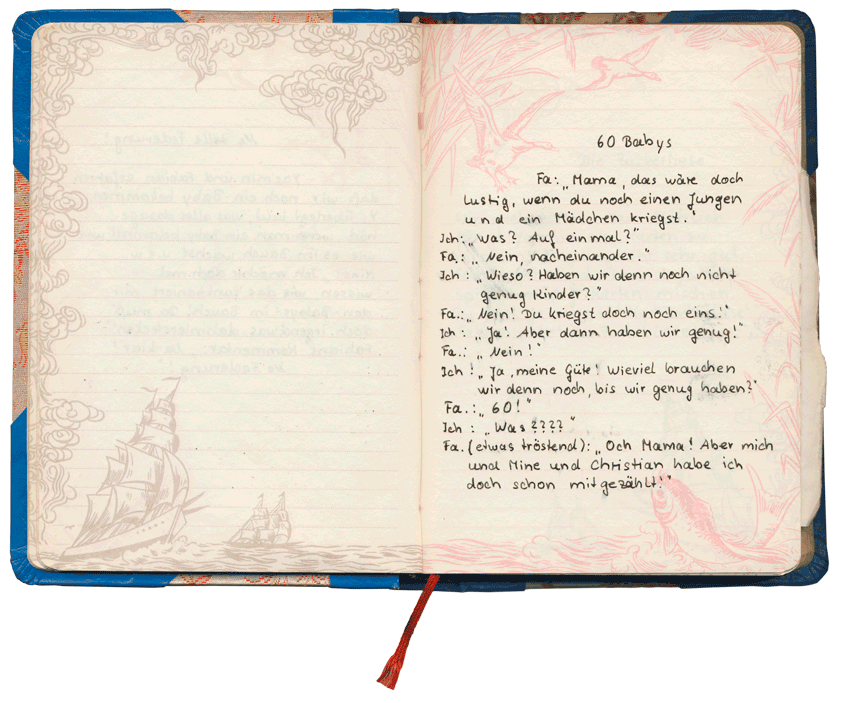 60 Babys
Fa.: „Mama, das wäre doch
lustig, wenn du noch einen Jungen
und ein Mädchen kriegst."
Ich: „Was? Auf einmal?"
Fa.: „Nein, nacheinander."
Ich: „Wieso? Haben wir denn noch nicht
genug Kinder?"
Fa.: „Nein! Du kriegst doch noch eins!"
Ich: „Ja! Aber dann haben wir genug!"
Fa.: „Nein!"
Ich: „Ja, meine Güte! Wieviel brauchen
wir denn noch, bis wir genug haben?"
Fa.: „60!"
Ich: „Was????"
Fa. (etwas tröstend): „Och Mama! Aber mich
und Mine und Christian habe ich
doch schon mitgezählt!"